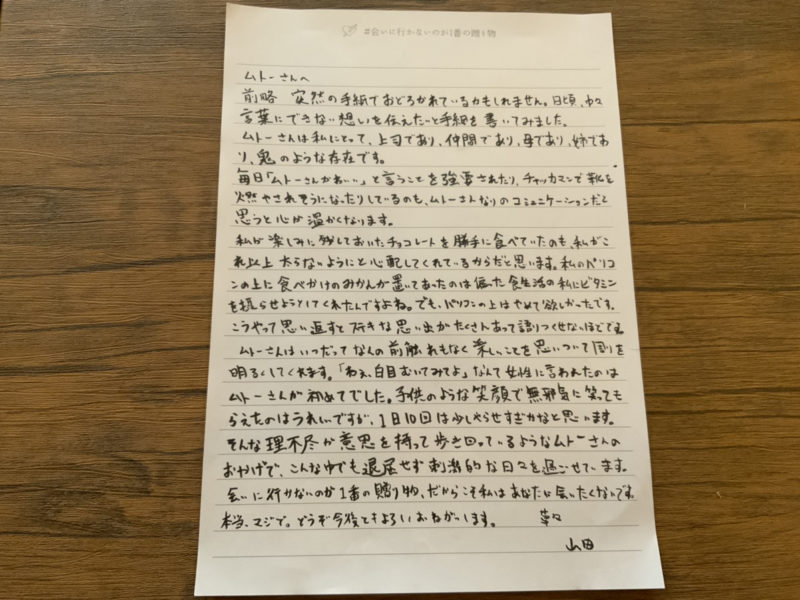 #会いに行かないのが1番の贈り物
ムトーさんへ
前略 突然の手紙でおどろかれているかもしれません。日頃、中々
言葉にできない想いを伝えたいと手紙を書いてみました。
ムトーさんは私にとって、上司であり、仲間であり、母であり、姉であ
り、鬼のような存在です。
毎日「ムトーさんかわいい」と言うことを強要されたり、チャッカマンで靴を
燃やされそうになったりしているのも、ムトーさんなりのコミュニケーションだと
思うと心が温かくなります。
私が楽しみに残しておいたチョコレートを勝手に食べていたのも、私がこ
れ以上太らないようにと心配してくれているからだと思います。私のパソコ
ンの上に食べかけのみかんが置いてあったのは偏った食生活の私にビタミン
を摂らせようとしてくれたんですよね。でも、パソコンの上はやめて欲しかったです。
こうやって思い返すとステキな思い出がたくさんあって語りつくせないほどです。
ムトーさんはいつだってなんの前触れもなく楽しいことを思いついて周りを
明るくしてくれます。「ねぇ、白目むいてみてよ」なんて女性に言われたのは
ムトーさんが初めてでした。子供のような笑顔で無邪気に笑っても
らえたのはうれしいですが、1日10回は少しやらせすぎかなと思います。
そんな理不尽が意思を持って歩き回っているようなムトーさんの
おかげで、こんな中でも退屈せず刺激的な日々を過ごせています。
会いに行かないのが1番の贈り物、だからこそ私はあなたに会いたくないです。
本当、マジで。どうぞ今後ともよろしくおねがいします。 草々
山田